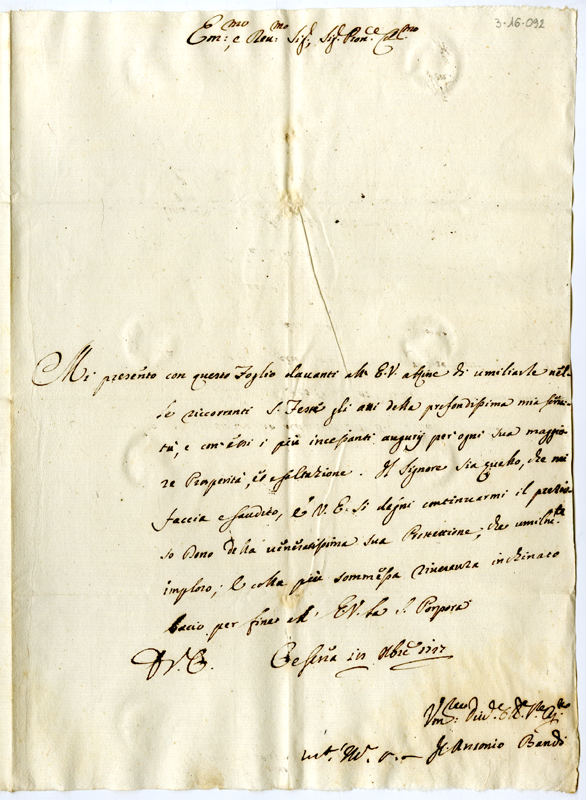 3-16-092
Em:mo e Rev:mo Sig.r, Sig.r Pron.e Col.mo
Mi presento con questo Foglio davanti all' E.V. affine di umiliarle nel-
le riccorrenti S. Feste gli atti della profondissima mia servi-
tù, e con essi i più incessanti augurij per ogni sua maggio-
re Prosperità, ed esaltazione. Il Signore sia quello, che mi
faccia esaudito, e V. E. si degni continuarmi il prezio-
so Dono della veneratissima sua Protettione, che umilm.te
imploro; e colla più sommessa riverenza inchinato
bacio per fine all' E.V. la S. Porpora
D. V. E. Cesena in Xbre 1717
Um:
F. Antonio Bandi